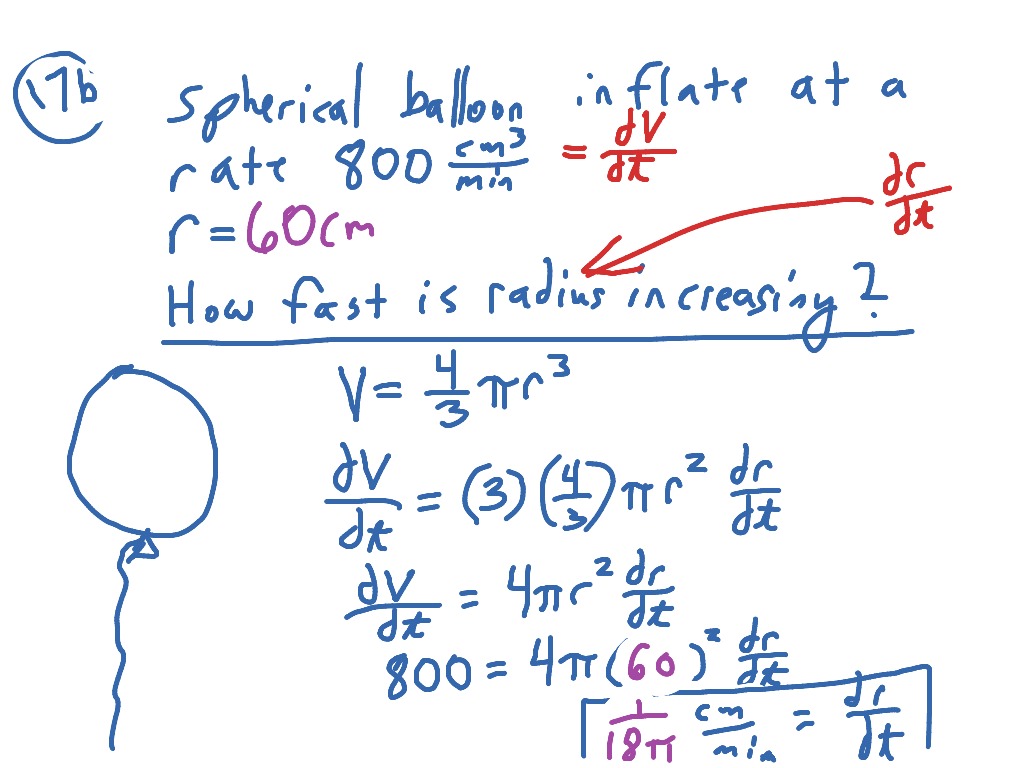 17b
Spherical balloon inflate at a
rate 800 cm³/min = dV/dt
dr/dt
r = 60cm
How fast is radius increasing?
V = 4/3 πr³
dV/dt = (3)(4/3)πr² dr/dt
dV/dt = 4πr² dr/dt
800 = 4π(60)² dr/dt
1/18π cm/min = dr/dt